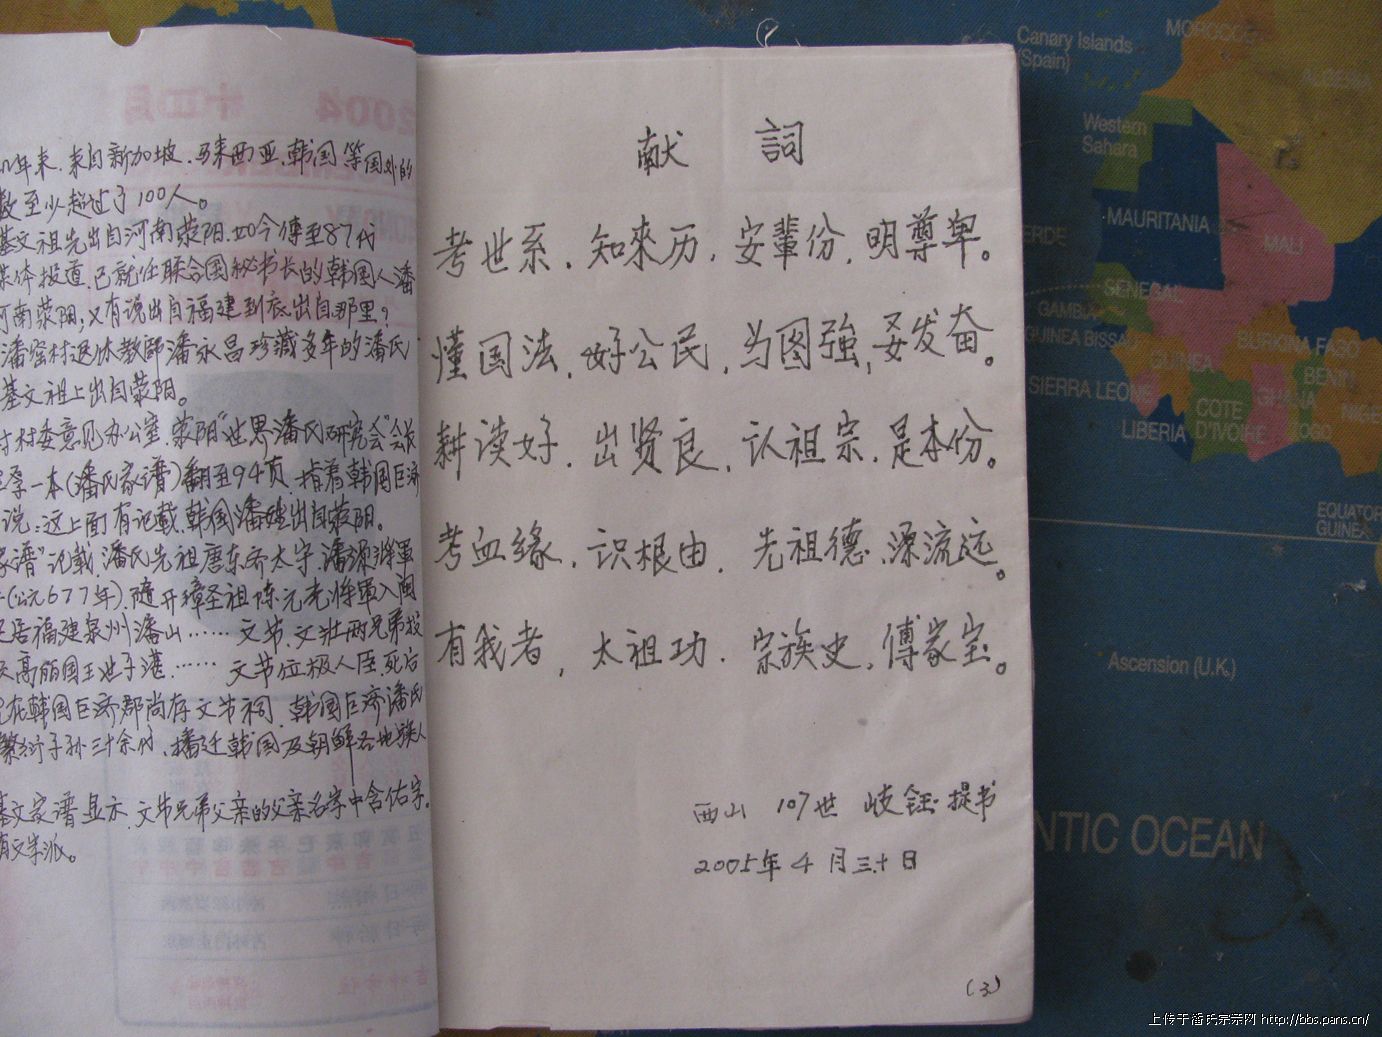 几年来,来自新加坡、马来西亚、韩国等国外的
数至少超过了100人。
基文祖先出自河南荥阳.如今傳至87代
媒体报道,已就任联合国秘书长的韩国人潘
河南荥阳,又有说出自福建到底出自那里?
潘窑村退休教師潘永昌珍藏多年的潘氏
基文祖上出自荥阳。
村村委意见办公室.荥阳"世界潘氏研究会"会长
拿一本(潘氏家谱)翻至94页.指着韩国巨济
说:这上面有记载.韩国潘姓出自荥阳。
家谱"记载.潘氏先祖唐东齐太守.潘源将軍
(公元677年).隨开璋圣祖陈元光将軍入闽
居福建泉州潘山……文节.文壮两兄弟投
高丽国王世子湛……文节位极人臣.死后
在韩国巨济郡尚存文节祠.韩国巨济潘氏
繁衍子孙三十余代.播迁韩国及朝鲜各地族人
基文家谱显示.文节兄弟父亲的父亲名字中含佑字。
有文字派。
献 詞
考世系,知來历,安輩份,明尊卑。
懂国法,好公民,为图強,要发奋。
耕读好,出贤良,认祖宗,是本份。
考血缘,识根由,先祖德,源流远。
有我者,太祖功,宗族史,傅家宝。
西山 107世 岐鈺提书
2005年4月三十日
(3)
Canary Islands
(Spain)
MOROCCO
ALGERIA
Western
Sahara
MAURITANIA
MALI
ERDE
SENEGAL
GAMBIA
GUINEA BISSAU
GUINEA
BURKINA FASO
BENIN
SIERRA LEONE
GHANA
NIGE
COTE
D'IVOIRE
TOGO
LIBERIA
EQUATOR
GUINEA
Ascension (U.K.)
NTIC OCEAN
上传于潘氏宗亲网 http://bbs.pans.cn/